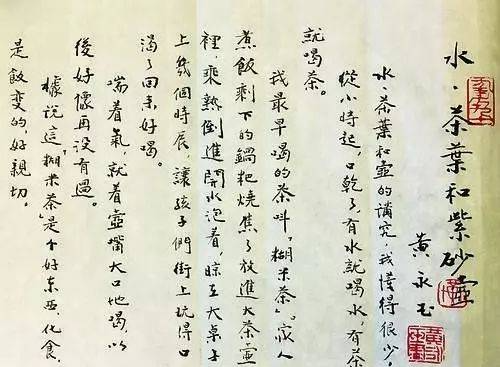 水·茶葉和紫砂壺
黃永玉
水·茶葉和壺的講究，我懂得很少，
從小時起，口乾了，有水就喝水，有茶
就喝茶。
我最早喝的茶叫“糊米茶”。家人
煮飯剩下的鍋粑燒焦了放進大茶壺
裡，乘熱倒進開水泡着，晾在大桌子
上幾個時辰，讓孩子們街上玩得口
渴了回來好喝。
喘着氣，就着壺嘴大口地喝，以
後好像再没有過。
據說這“糊米茶”是个好東西，化食，
是飯變的，好親切。